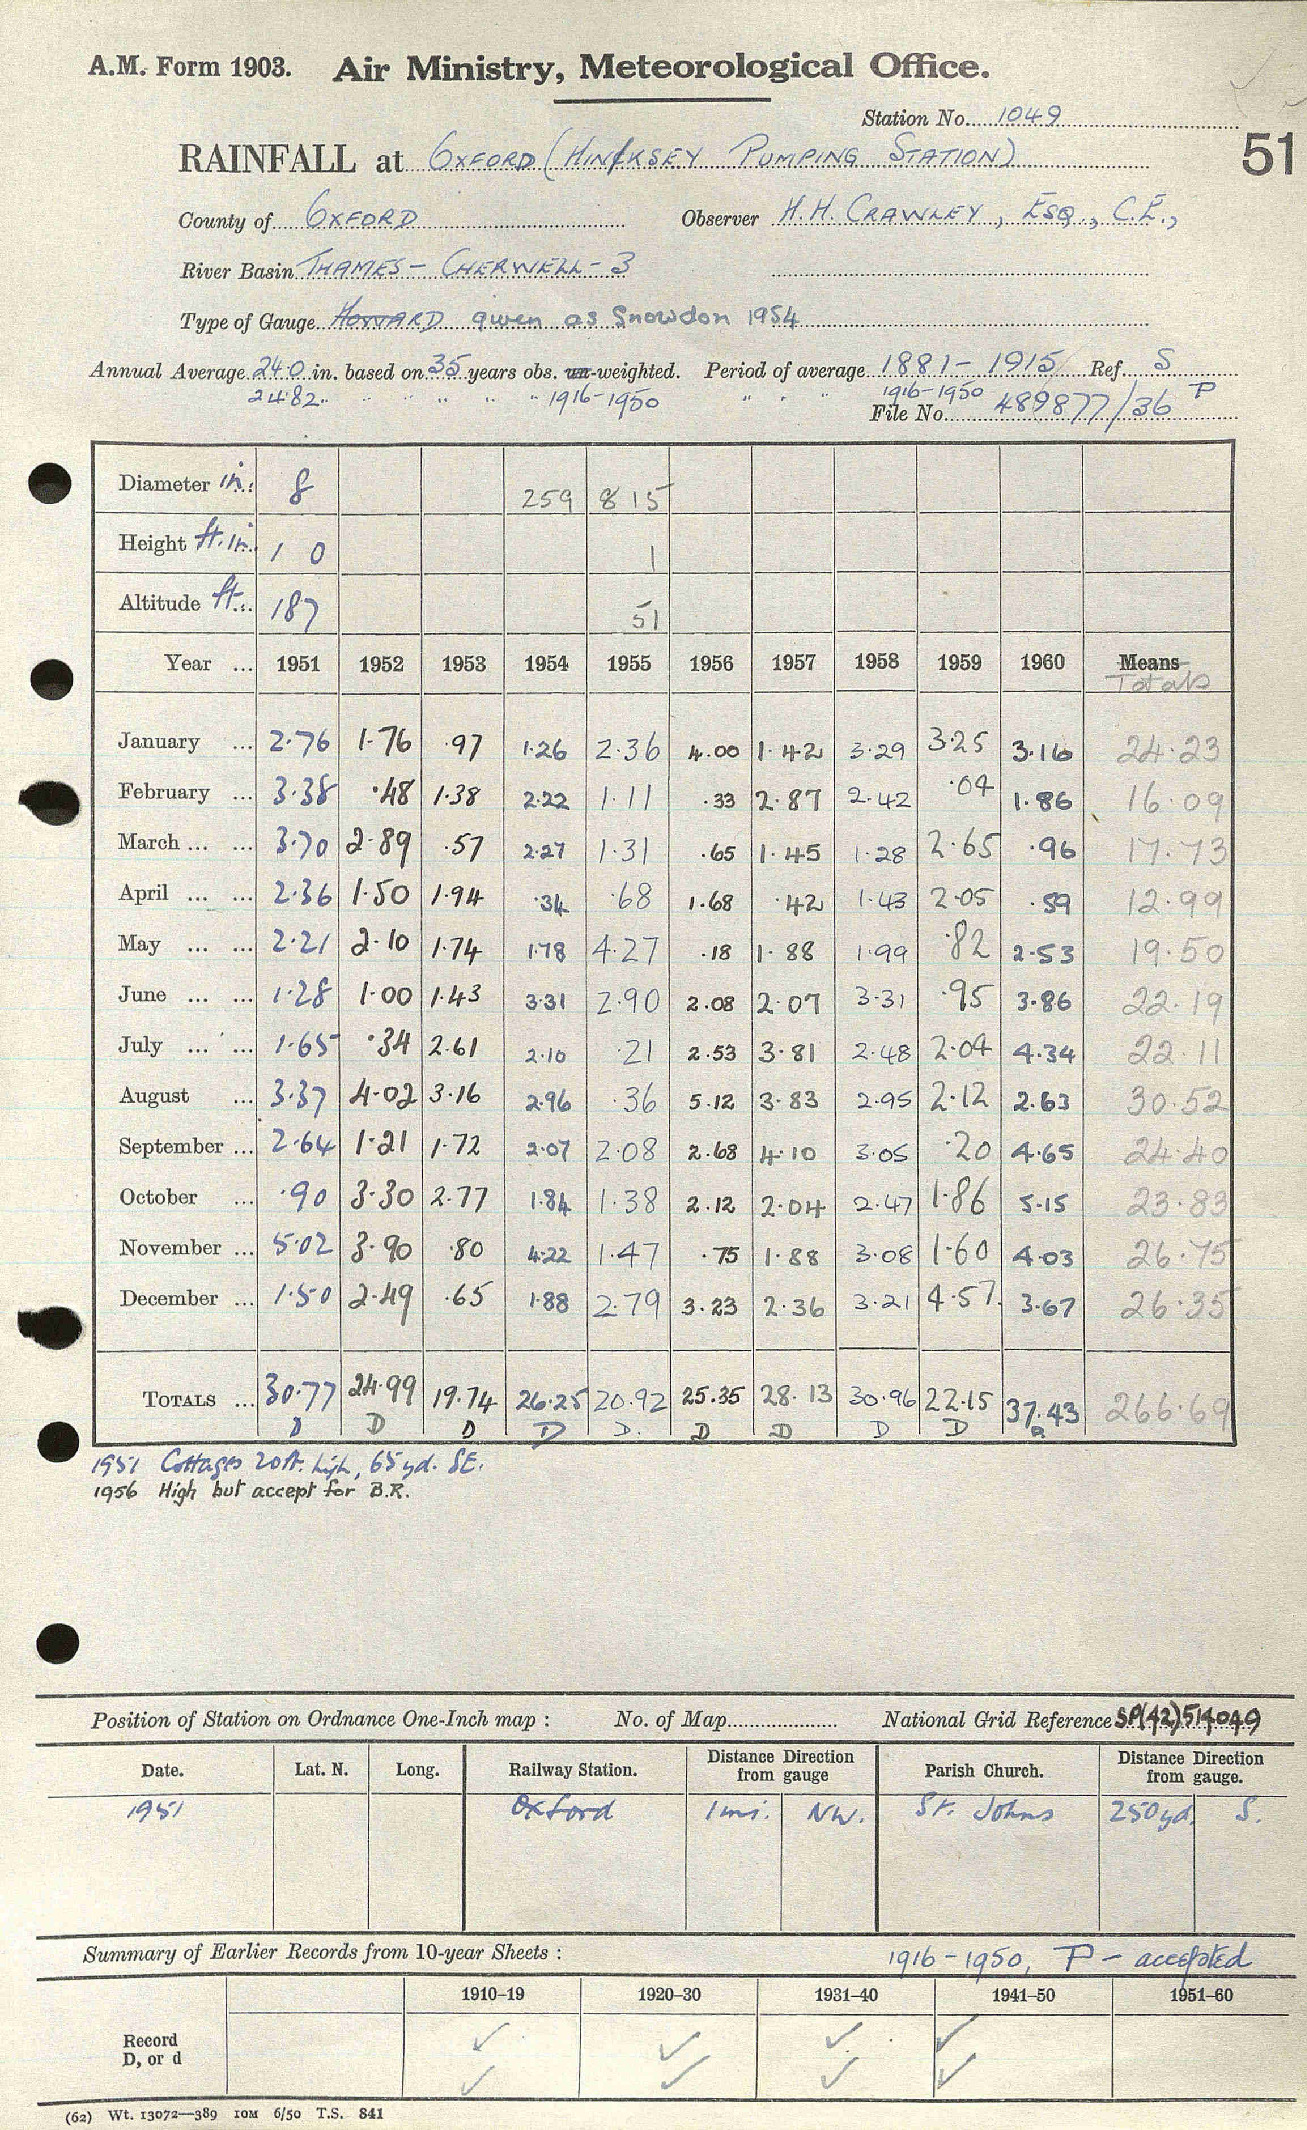 A.M. Form 1903. Air Ministry, Meteorological Office.
Station No. 1049
51
RAINFALL at OXFORD (HINKSEY PUMPING STATION)
County of OXFORD Observer H.H. CRAWLEY, ESQ., C.E.,
River Basin THAMES - CHERWELL - 3
Type of Gauge HOWARD given as Snowdon 1954
Annual Average 24.0 in. based on 35 years obs. un-weighted. Period of average 1881 - 1915 Ref. S
24.82 " " " " " 1916-1950 " " " 1916-1950 P
File No. 489877/36
Diameter in. 8 259 8 15
Height ft. in. 1 0 1
Altitude ft. 187 51
Year ... 1951 1952 1953 1954 1955 1956 1957 1958 1959 1960 Means Totals
January ... 2.76 1.76 .97 1.26 2.36 4.00 1.42 3.29 3.25 3.16 24.23
February ... 3.38 .48 1.38 2.22 1.11 .33 2.87 2.42 .04 1.86 16.09
March ... ... 3.70 2.89 .57 2.27 1.31 .65 1.45 1.28 2.65 .96 17.73
April ... ... 2.36 1.50 1.94 .34 .68 1.68 .42 1.43 2.05 .59 12.99
May ... ... 2.21 2.10 1.74 1.78 4.27 .18 1.88 1.99 .82 2.53 19.50
June ... ... 1.28 1.00 1.43 3.31 2.90 2.08 2.07 3.31 .95 3.86 22.19
July ... ... 1.65 .34 2.61 2.10 .21 2.53 3.81 2.48 2.04 4.34 22.11
August ... 3.37 4.02 3.16 2.96 .36 5.12 3.83 2.95 2.12 2.63 30.52
September ... 2.64 1.21 1.72 2.07 2.08 2.68 4.10 3.05 .20 4.65 24.40
October ... .90 3.30 2.77 1.84 1.38 2.12 2.04 2.47 1.86 5.15 23.83
November ... 5.02 3.90 .80 4.22 1.47 .75 1.88 3.08 1.60 4.03 26.75
December ... 1.50 2.49 .65 1.88 2.79 3.23 2.36 3.21 4.57 3.67 26.35
TOTALS ... 30.77 24.99 19.74 26.25 20.92 25.35 28.13 30.96 22.15 37.43 266.69
D D D D D. D D D D
1951 Cottages 20ft. high, 65yd. SE.
1956 High but accept for B.R.
Position of Station on Ordnance One-Inch map : No. of Map.................... National Grid Reference SP(42)514049
Date. Lat. N. Long. Railway Station. Distance Direction from gauge Parish Church. Distance Direction from gauge.
1951 Oxford 1mi. NW. St. Johns 250yd. S.
Summary of Earlier Records from 10-year Sheets : 1916-1950, P - accepted
1910–19 1920–30 1931–40 1941–50 1951–60
Record
D, or d
(62) Wt. 13072—389 10M 6/50 T.S. 841